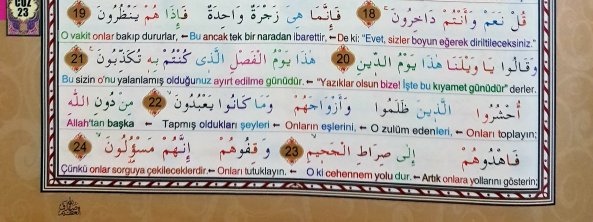 CÜZ
23
قُلْ نَعَمْ وَاَنْتُمْ دَاخِرُونَ ۚ 18 فَاِنَّمَا هِيَ زَجْرَةٌ وَاحِدَةٌ فَاِذَا هُمْ يَنْظُرُونَ 19
De ki: "Evet, sizler boyun eğerek diriltileceksiniz." ← Bu ancak tek bir naradan ibarettir, ← O vakit onlar bakıp dururlar,
وَقَالُوا يَا وَيْلَنَا هٰذَا يَوْمُ الدّ۪ينِ 20 هٰذَا يَوْمُ الْفَصْلِ الَّذ۪ي كُنْتُمْ بِه۪ تُكَذِّبُونَ ۟ 21
"Yazıklar olsun bize! İşte bu kıyamet günüdür" derler. ← Bu sizin o'nu yalanlamış olduğunuz ayırt edilme günüdür.
اُحْشُرُوا الَّذ۪ينَ ظَلَمُوا وَاَزْوَاجَهُمْ وَمَا كَانُوا يَعْبُدُونَ ۙ 22 مِنْ دُونِ اللّٰهِ
Onları toplayın; ← O zulüm edenleri, ← Onların eşlerini, ← Tapmış oldukları şeyleri ← Allah'tan başka
فَاهْدُوهُمْ اِلٰى صِرَاطِ الْجَح۪يمِ 23 وَقِفُوهُمْ اِنَّهُمْ مَسْؤُ۫لُونَ ۙ 24
Artık onlara yollarını gösterin; ← O ki cehennem yolu dur. ← Onları tutuklayın. ← Çünkü onlar sorguya çekileceklerdir.